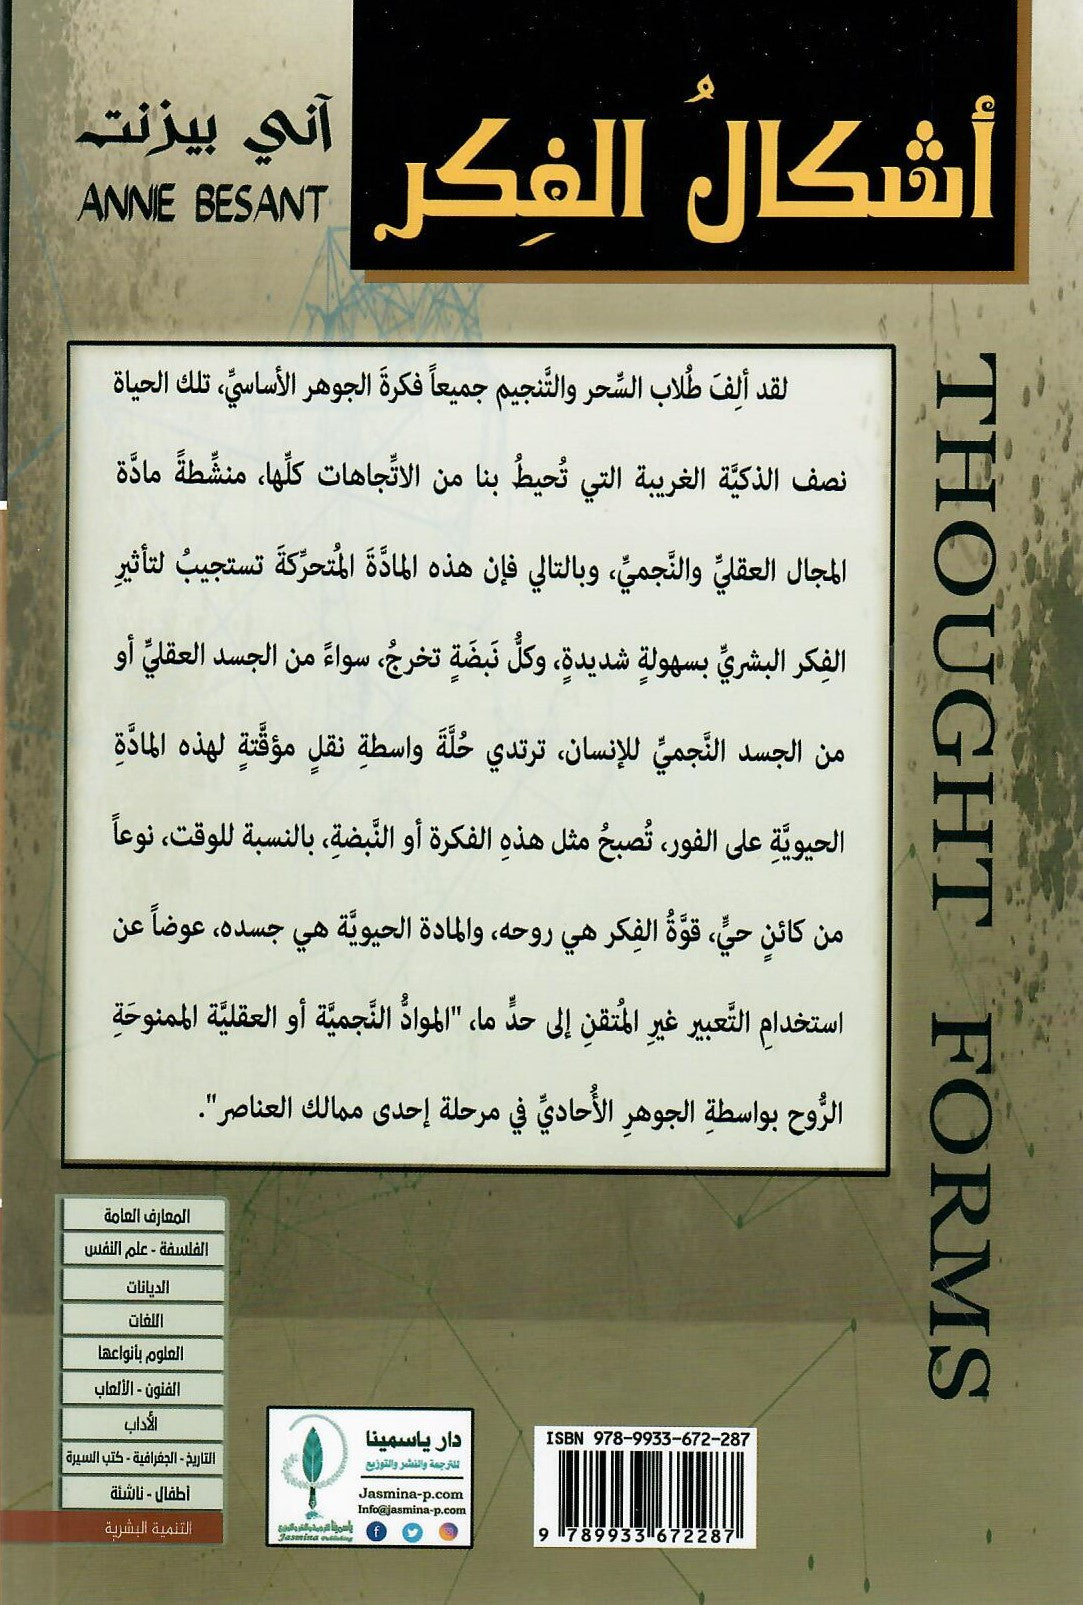 أشكالُ الفِكر
آني بيزنت
ANNIE BESANT
THOUGHT FORMS
لقد ألِفَ طُلاب السِّحر والتَّنجيم جميعاً فكرةَ الجوهر الأساسيِّ، تلك الحياة
نصف الذكيَّة الغريبة التي تُحيطُ بنا من الاتِّجاهات كلِّها، منشِّطةً مادَّة
المجال العقليِّ والنَّجميِّ، وبالتالي فإن هذه المادَّةَ المُتحرِّكةَ تستجيبُ لتأثيرِ
الفِكر البشريِّ بسهولةٍ شديدةٍ، وكلُّ نَبضَةٍ تخرجُ، سواءً من الجسد العقليِّ أو
من الجسد النَّجميِّ للإنسان، ترتدي حُلَّةَ واسطةِ نقلٍ مؤقَّتةٍ لهذه المادَّةِ
الحيويَّةِ على الفور، تُصبحُ مثل هذهِ الفكرة أو النَّبضةِ، بالنسبة للوقت، نوعاً
من كائنٍ حيٍّ، قوَّةُ الفِكر هي روحه، والمادة الحيويَّة هي جسده، عوضاً عن
استخدامِ التَّعبير غيرِ المُتقنِ إلى حدٍّ ما، "الموادُّ النَّجميَّة أو العقليَّة الممنوحَةِ
الرُّوح بواسطةِ الجوهرِ الأُحاديِّ في مرحلة إحدى ممالك العناصر".
المعارف العامة
الفلسفة - علم النفس
الديانات
اللغات
العلوم بأنواعها
الفنون - الألعاب
الأداب
التاريخ - الجغرافية - كتب السيرة
أطفال - ناشئة
التنمية البشرية
دار ياسمينا
للترجمة والنشر والتوزيع
Jasmina-p.com
Info@jasmina-p.com
ياسمينا للترجمة والنشر والتوزيع
Jasmina Publishing
ISBN 978-9933-672-287
9 789933 672287